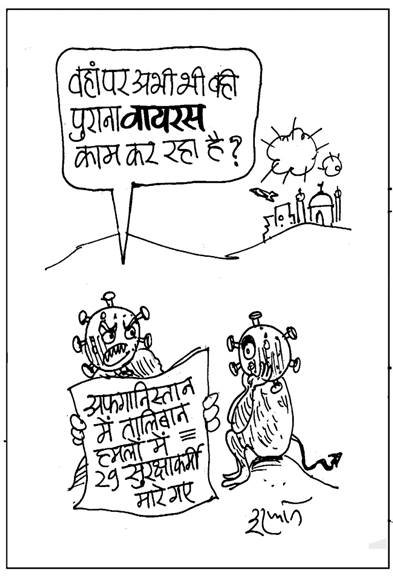 वहां पर अभी भी वही
पुराना वायरस
काम कर रहा है?
अफ़गानिस्तान
में तालिबान
हमलों में
29 सुरक्षाकर्मी
मारे गए